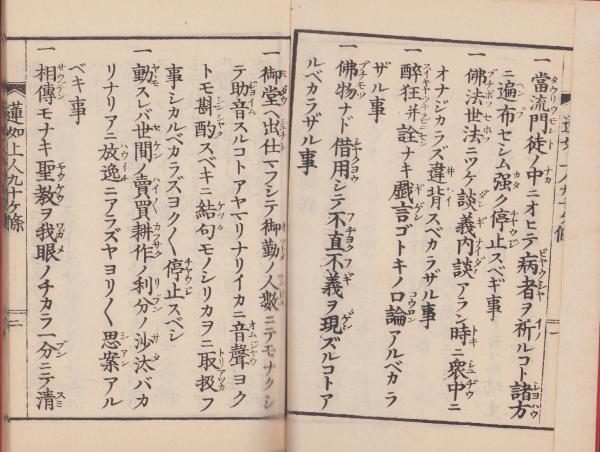 一當流門徒ノ中ニオヒテ病者ヲ祈ルコト諸方
ニ遍布セシム强ク停止スベギ事
一佛法世法ニツケ談義内談アラン時ニ衆中ニ
オナジカラズ違背スベカラザル事
一醉狂幷詮ナキ戲言ゴトキノロ論アルベカラ
ザル事
一佛物ナド借用シテ不直不義ヲ現ズルコトア
ルベカラザル事
一御堂ヘ出仕マフシテ御勤ノ人數ニテモナクシ
テ助音スルコトアヤマリナリイカニ音聲ヨク
トモ斟酌スベキニ結句モノシリカヲニ取扱フ
事シカルベカラズヨク〱停止スベシ
一動スレバ世間ノ賣買耕作ノ利分ノ沙汰バカ
リナリアニ放逸ニアラズヤヨリ〱思案アル
ベキ事
一相傳モナキ聖教ヲ我眼ノチカラ一分ニテ清
蓮如上人九十ケ條
二